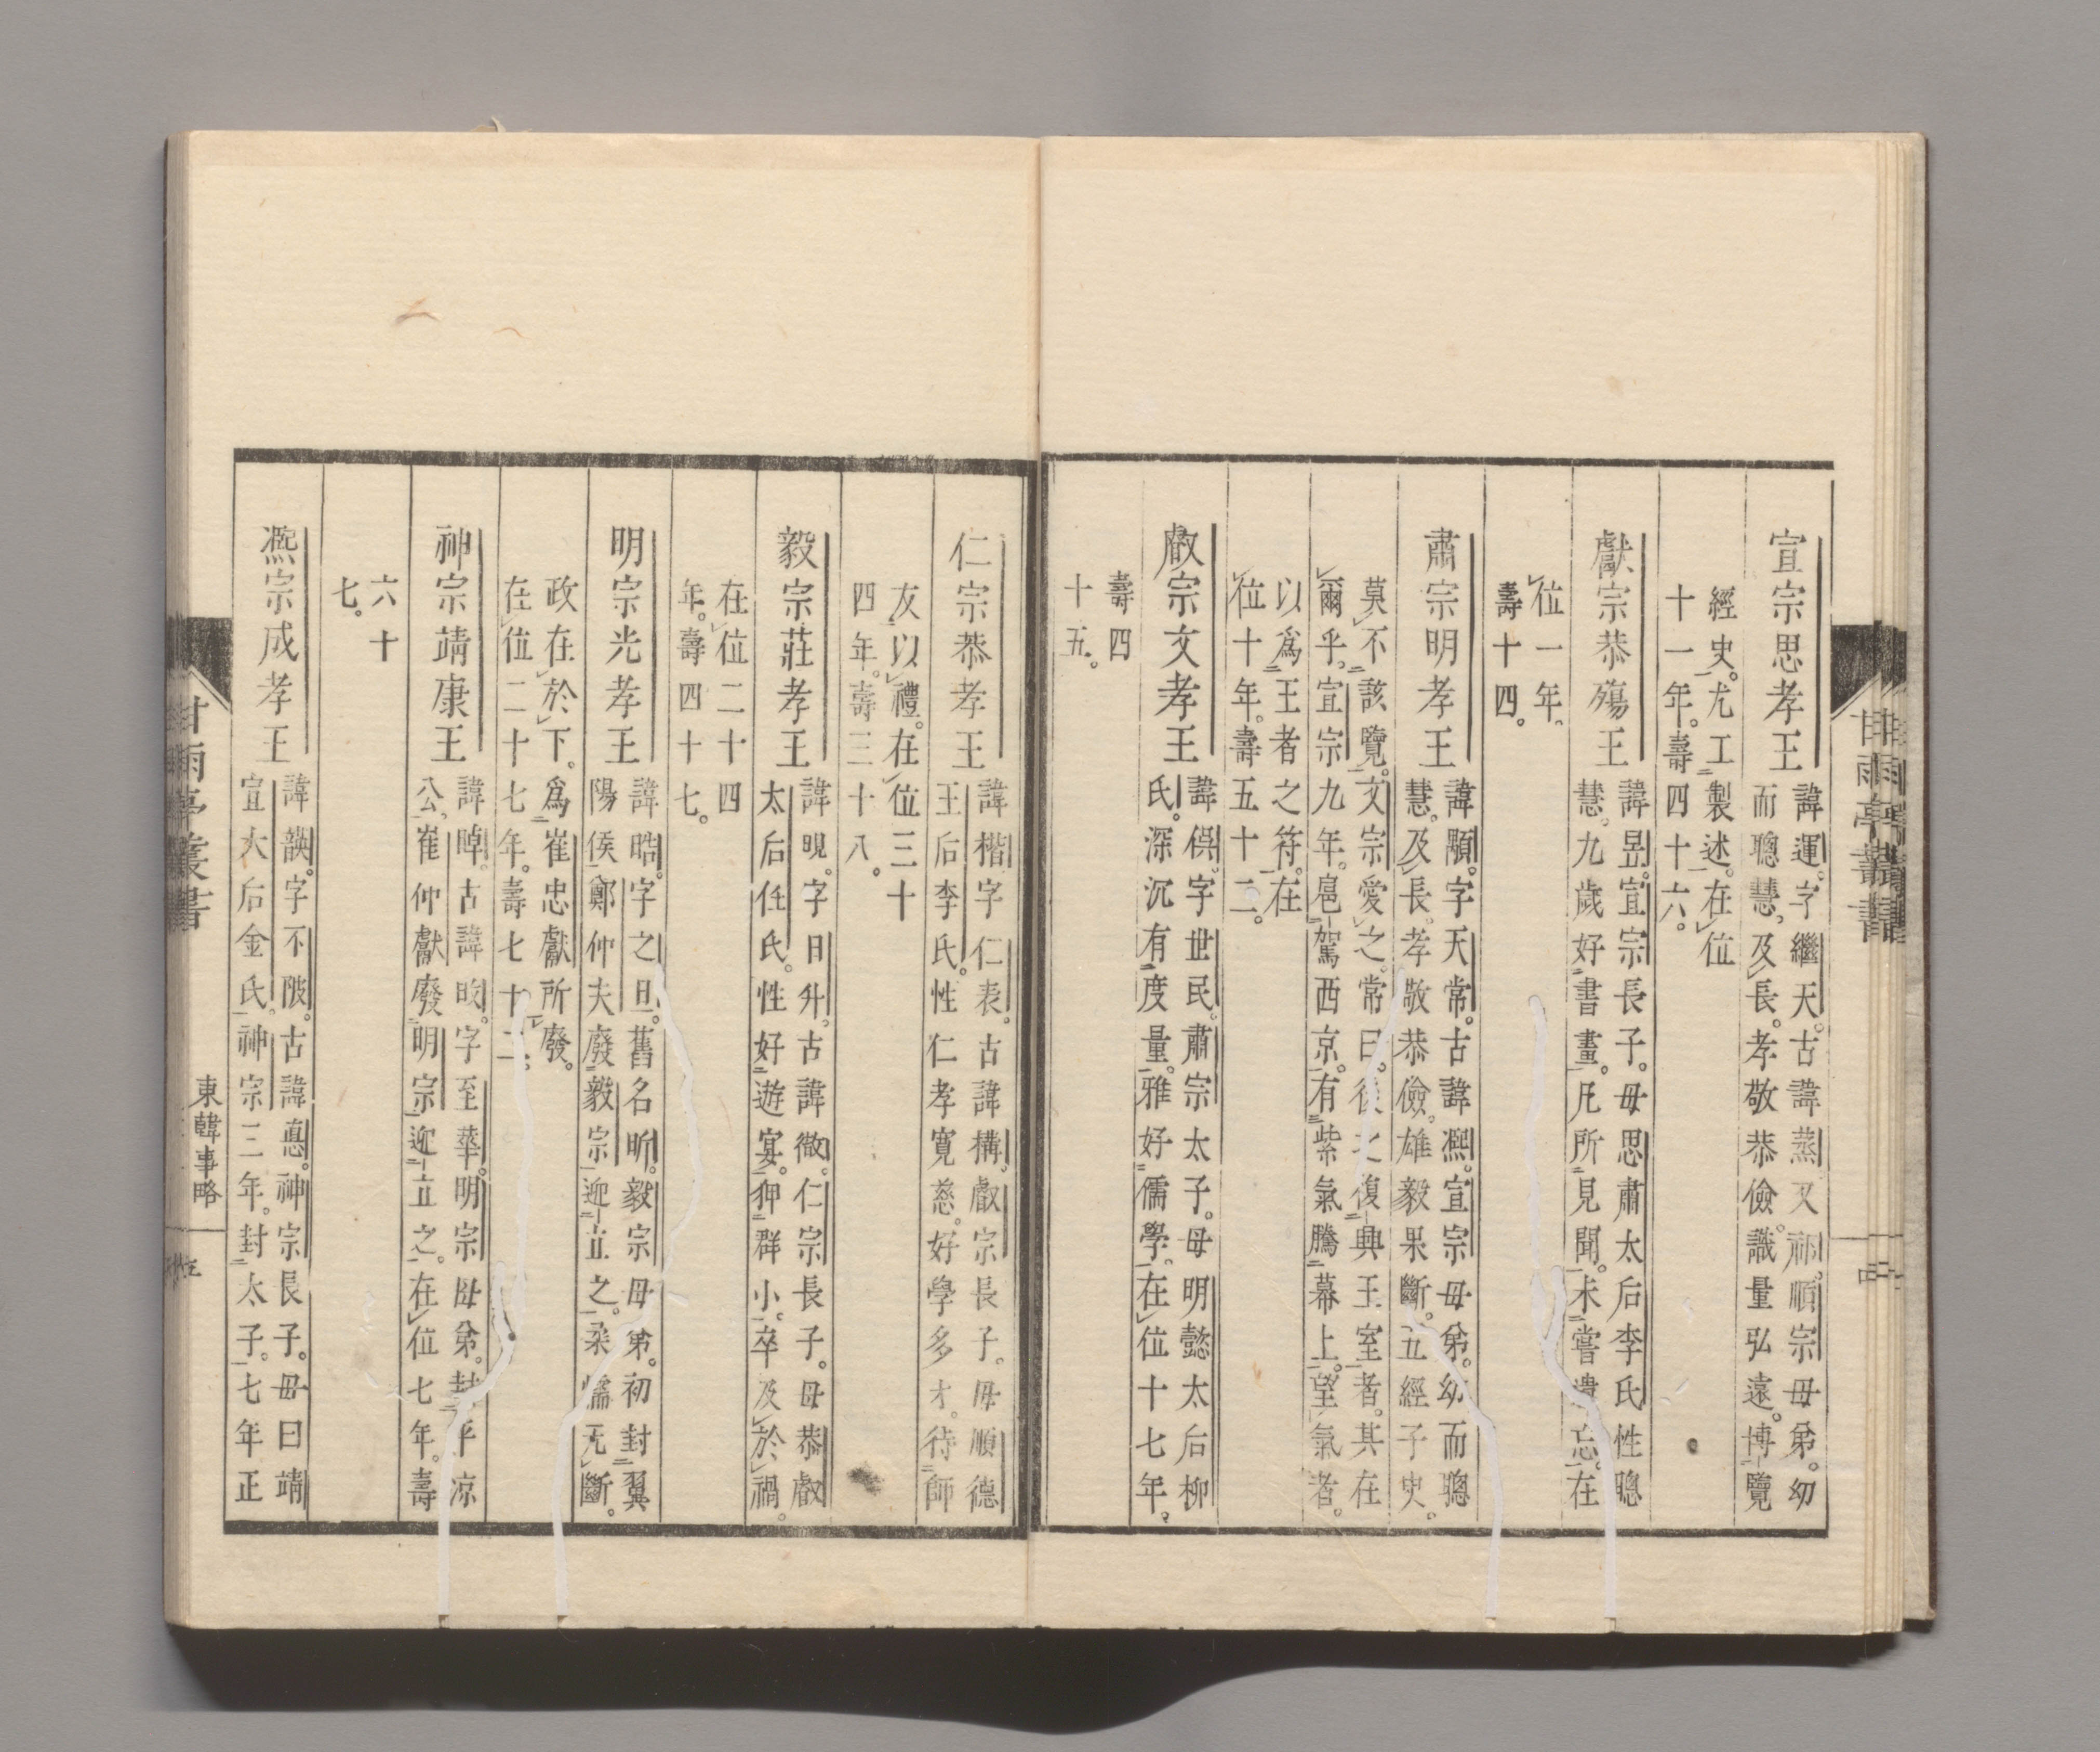 宣宗思孝王
諱運。字繼天。古諱蒸又祁。順宗母弟。幼
而聰慧。及長。孝敬恭儉。識量弘遠。博覽
經史。尤工製述。在位
十一年。壽四十六。
獻宗恭殤王
諱昱。宣宗長子。母思肅太后李氏性聰
慧。九歲好書畫。凡所見聞。未嘗遺忘。在
位一年。
壽十四。
肅宗明孝王
諱顒。字天常。古諱凞。宣宗母弟。幼而聰
慧。及長。孝敬恭儉。雄毅果斷。五經子史。
莫不該覽。文宗愛之。常曰。後之復興王室者。其在
爾乎。宣宗九年。扈駕西京。有紫氣騰幕上。望氣者。
以為王者之符。在
位十年。壽五十二。
叡宗文孝王
諱俁。字世民。肅宗太子。母明懿太后柳
氏。深沉有度量。雅好儒學。在位十七年。
壽四
十五。
仁宗恭孝王
諱楷字仁表。古諱構。叡宗長子。母順德
王后李氏。性仁孝寬慈。好學多才。待師
友以禮。在位三十
四年。壽三十八。
毅宗莊孝王
諱晛。字日升。古諱徹。仁宗長子。母恭叡
太后任氏。性好遊宴。狎群小。卒及於禍。
在位二十四
年。壽四十七。
明宗光孝王
諱晧。字之旦。舊名昕。毅宗母弟。初封翼
陽侯。鄭仲夫廢毅宗迎立之。柔懦无斷。
政在於下。為崔忠獻所廢。
在位二十七年。壽七十二。
神宗靖康王
諱晫。古諱旼。字至華。明宗母弟。封平凉
公。崔仲獻廢明宗迎立之。在位七年。壽
六十
七。
凞宗成孝王
諱韺。字不陂。古諱悳。神宗長子。母曰靖
宣太后金氏。神宗三年。封太子。七年正
甘雨亭叢書
東韓事略